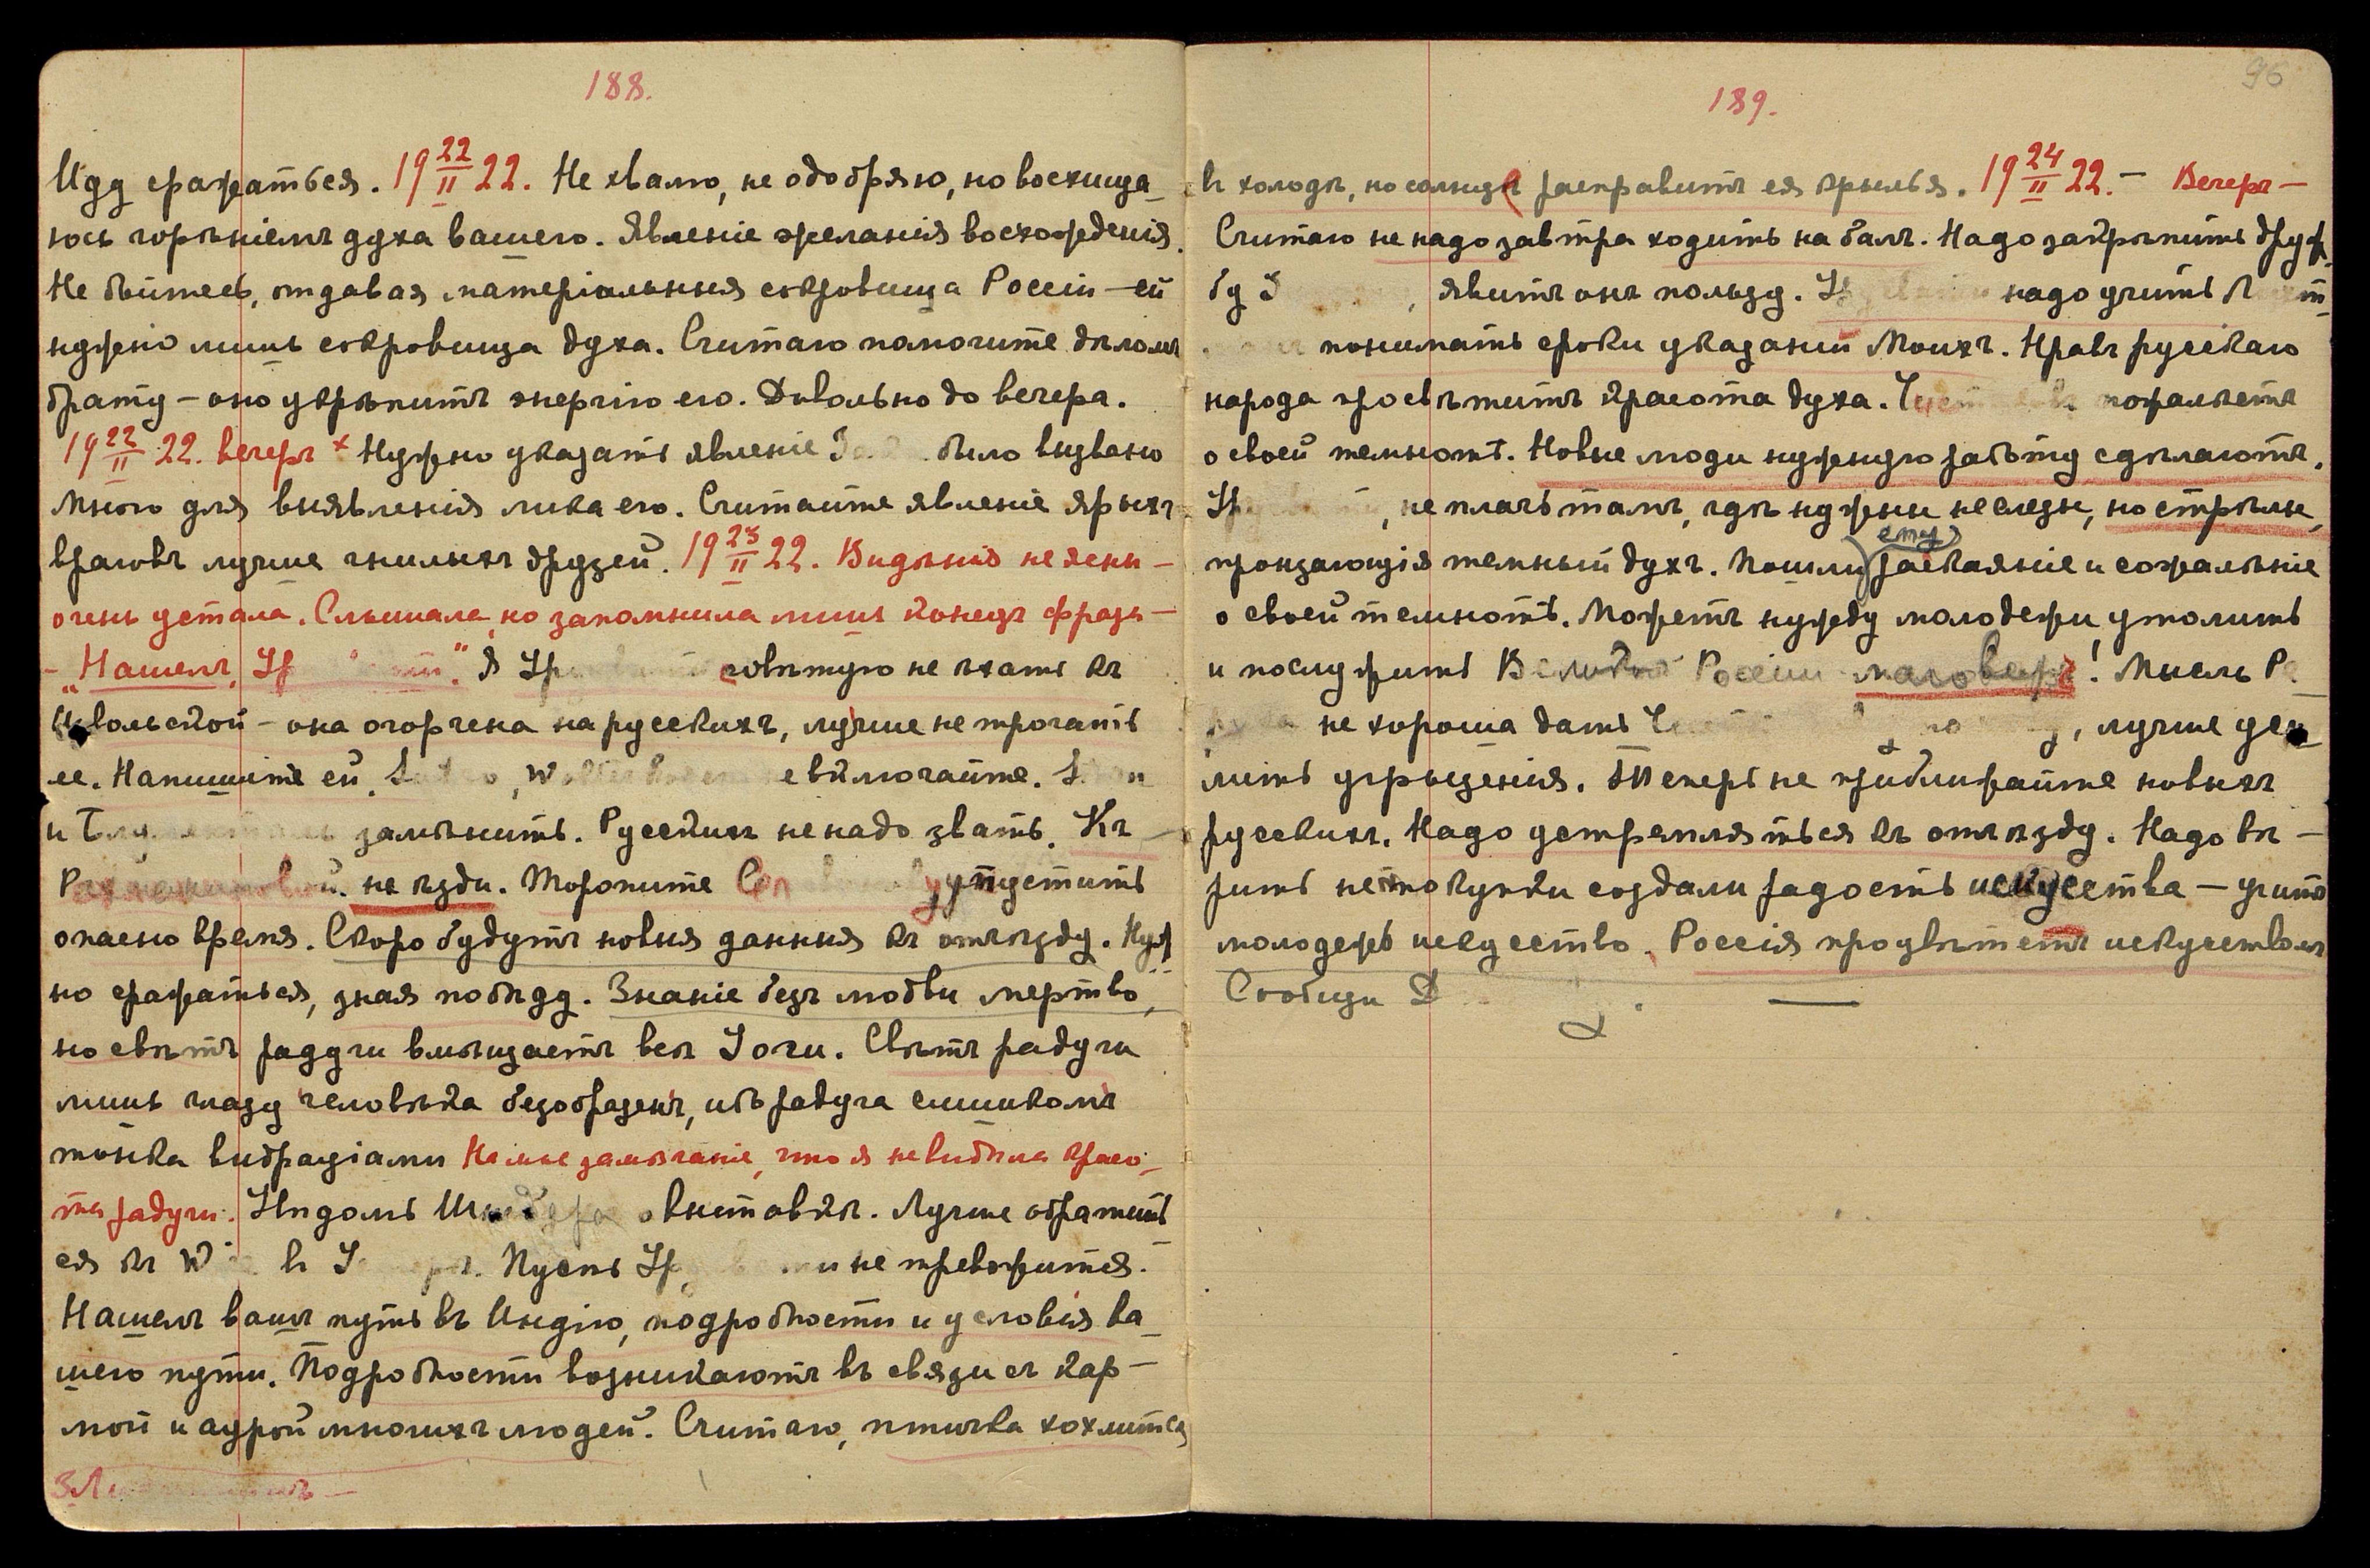 188.
Иду сражаться. 19 22/II 22. Не хвалю, не одобряю, но восхища-
юсь горѣніемъ духа вашего. Явленіе желанія восхожденія.
Не бойтесь, отдавая матеріальныя сокровища Россіи – ей
нужно лишь сокровища духа. Считаю помогите дѣломъ
брату – оно укрѣпитъ энергію его. Довольно до вечера.
19 22/II 22. вечеръ × Нужно указать явленіе было вызвано
много для выявленія лика его. Считайте явленіе ярыхъ
враговъ лучше гнилыхъ друзей. 19 23/II 22. Видѣнія не ясны –
очень устала. Слышала, но запомнила лишь конецъ фразы –
– „Нашелъ, Ур". Я совѣтую не ѣхать къ
вольской – она огорчена на русскихъ, лучше не трогать
ее. Напишите ей, включайте.
и замѣнить. Русскихъ не надо звать. Къ –
не ѣзди. Торопите упустить
опасно время. Скоро будутъ новыя данныя къ отъѣзду. Нуж
но сражаться, зная побѣду. Знаніе безъ любви мертво,
но свѣтъ радуги вмѣщаетъ всѣ Іоги. Свѣтъ радуги
лишь глазу человѣка безобразенъ, ибо радуга слишкомъ
тонка вибраціями На мое замѣчаніе, что я не видѣла красо-
ты радуги. выставкѣ. Лучше обратить
ся къ W въ Пусть не тревожится.
Нашелъ вашъ путь въ Индію, подробности и условія ва-
шего пути. Подробности возникаютъ въ связи съ кар –
мой и аурой многихъ людей. Считаю, птичка хохлится
96
189.
въ холодъ, но солнце расправитъ ея крылья. 19 24/II 22. – Вечеръ –
Считаю не надо завтра ходить на балъ. Надо закрѣпить друж-
бу явитъ онъ пользу. надо учить
понимать сроки указаній Моихъ. Нравъ русскаго
народа просвѣтитъ красота духа. пожалѣетъ
о своей темнотѣ. Новые люди нужную работу сдѣлаютъ.
не плачь тамъ, гдѣ нужны не слезы, но стрѣлы,
пронзающія темный духъ. Пошли ему раскаяніе и сожалѣніе
о своей темнотѣ. Можетъ нужду молодежи утолить
и послужить Великой Россіи маловеръ! Мысль
не хороша дать лучше уси
лить угрызенія. Теперь не приближайте новыхъ
русскихъ. Надо устремляться къ отъѣзду. Надо вѣ –
рить не покупки создали радость искусства – учить
молодежь искусство. Россія процвѣтетъ искусствомъ
Сообщи —